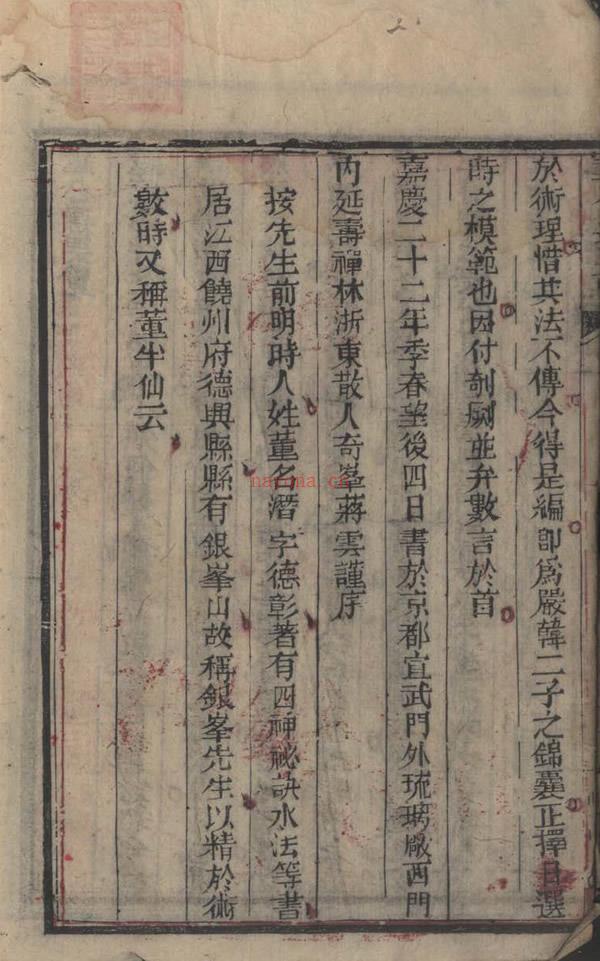 於術理惜其法不傳今得是編卽爲嚴韓二子之錦囊正擇日選
時之模範也因付剞劂並弁數言於首
嘉慶二十二年季春望後四日書於京都宣武門外琉璃厰西門
內延壽禪林浙東散人奇峯蔣雲謹序
按先生前明時人姓董名潛字德彰著有四神秘訣水法等書
居江西饒州府德興縣縣有銀峯山故稱銀峯先生以精於術
數時又稱董半仙云